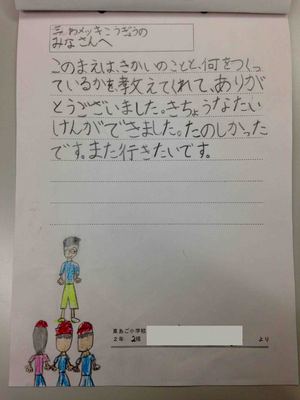 三わメッキこうぎょうの
みなさんへ
このまえは、きかいのことと、何をつく
っているかを教えてくれて、ありが
とうございました。きちょうなたい
けんができました。たのしかった
です。また行きたいです。
東あご小学校
2年 2組
より